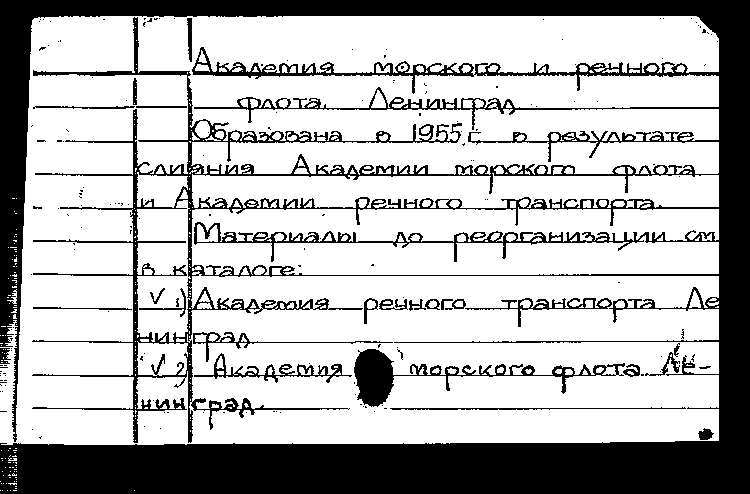 Академия морского и речного
флота. Ленинград
Образована в 1955 г. в результате
слияния Академии морского флота
и Академии речного транспорта.
Материалы до реорганизации см
в каталоге:
V 1) Академия речного транспорта Ле
нинград
V 2) Академия морского флота Ле-
нинград.